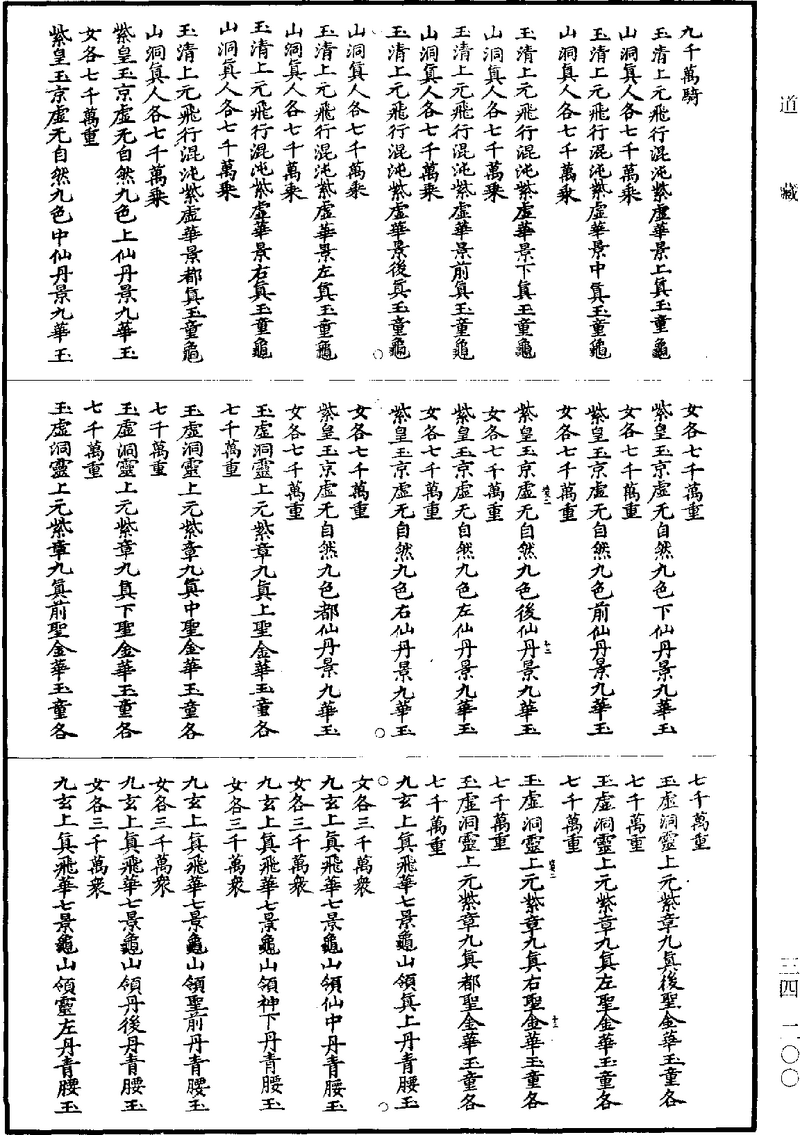 道藏
九千萬騎
玉清上元飛行混沌紫虛華景上真玉童龜
山洞真人各七千萬乘
玉清上元飛行混沌紫虛華景中真玉童龜
山洞真人各七千萬乘
玉清上元飛行混沌紫虛華景下真玉童龜
山洞真人各七千萬乘
玉清上元飛行混沌紫虛華景前真玉童龜
山洞真人各七千萬乘
玉清上元飛行混沌紫虛華景後真玉童龜
山洞真人各七千萬乘
玉清上元飛行混沌紫虛華景左真玉童龜
山洞真人各七千萬乘
玉清上元飛行混沌紫虛華景右真玉童龜
山洞真人各七千萬乘
玉清上元飛行混沌紫虛華景都真玉童龜
山洞真人各七千萬乘
紫皇玉京虛无自然九色上仙丹景九華玉
女各七千萬重
紫皇玉京虛无自然九色中仙丹景九華玉
女各七千萬重
紫皇玉京虛无自然九色下仙丹景九華玉
女各七千萬重
紫皇玉京虛无自然九色前仙丹景九華玉
女各七千萬重
紫皇玉京虛无自然九色後仙丹景九華玉
女各七千萬重
紫皇玉京虛无自然九色左仙丹景九華玉
女各七千萬重
紫皇玉京虛无自然九色右仙丹景九華玉
女各七千萬重
紫皇玉京虛无自然九色都仙丹景九華玉
女各七千萬重
玉虛洞靈上元紫章九真上聖金華玉童各
七千萬重
玉虛洞靈上元紫章九真中聖金華玉童各
七千萬重
玉虛洞靈上元紫章九真下聖金華玉童各
七千萬重
玉虛洞靈上元紫章九真前聖金華玉童各
七千萬重
玉虛洞靈上元紫章九真後聖金華玉童各
七千萬重
玉虛洞靈上元紫章九真左聖金華玉童各
七千萬重
玉虛洞靈上元紫章九真右聖金華玉童各
七千萬重
玉虛洞靈上元紫章九真都聖金華玉童各
七千萬重
九玄上真飛華七景龜山領真上丹青腰玉
女各三千萬衆
九玄上真飛華七景龜山領仙中丹青腰玉
女各三千萬衆
九玄上真飛華七景龜山領神下丹青腰玉
女各三千萬衆
九玄上真飛華七景龜山領聖前丹青腰玉
女各三千萬衆
九玄上真飛華七景龜山領丹後丹青腰玉
女各三千萬衆
九玄上真飛華七景龜山領靈左丹青腰玉
三四－一〇〇